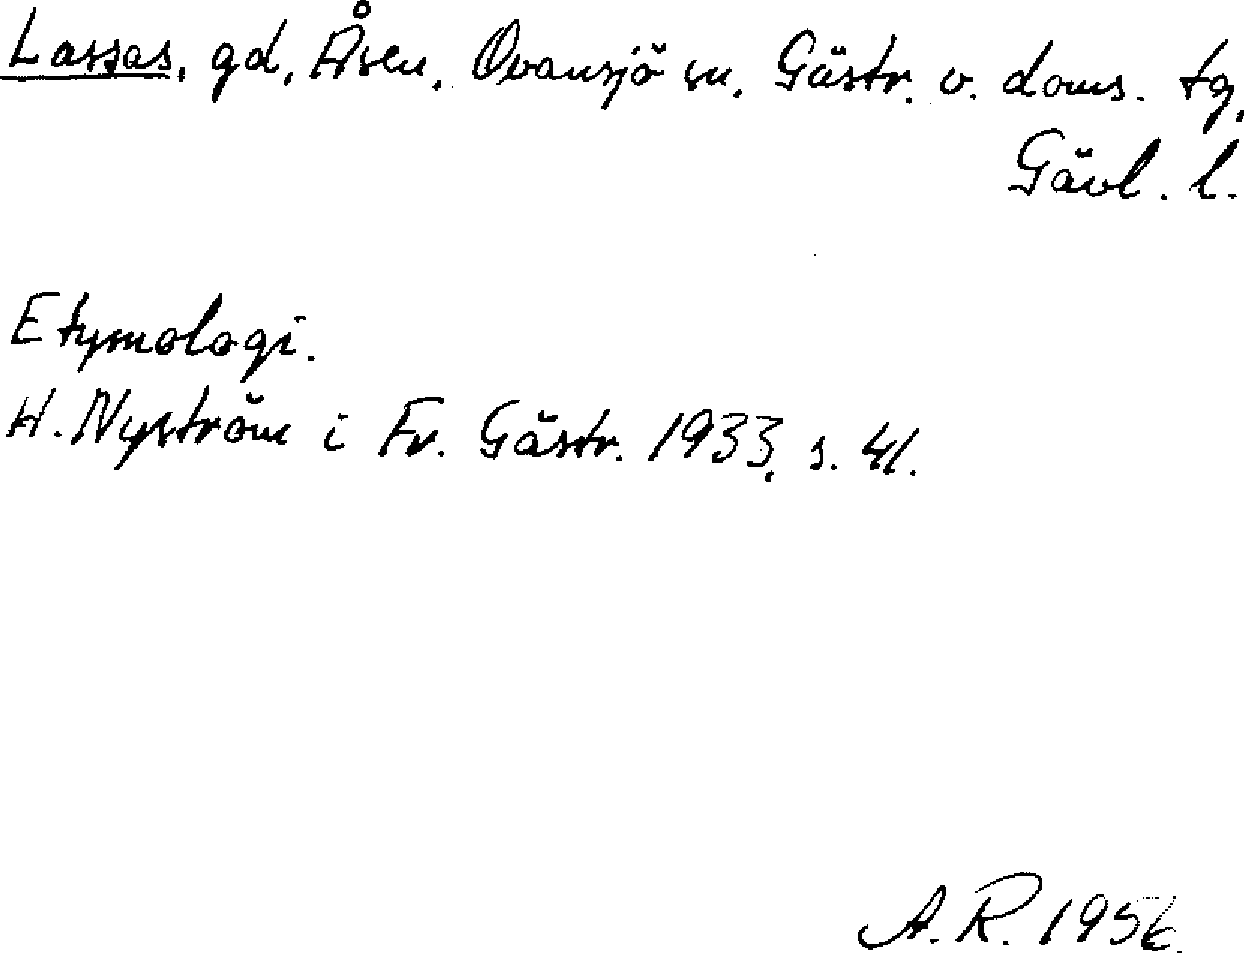 Lassas, gd, Åsen, Ovansjö sn, Gästr. v. doms. tg,
Gävl. l.
Etymologi.
H. Nyström i Fr. Gästr. 1933, s. 41.
A. R. 1956.